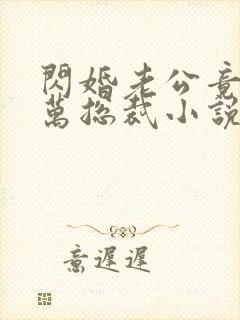 閃婚老公竟
萬總裁小說
意遲遲